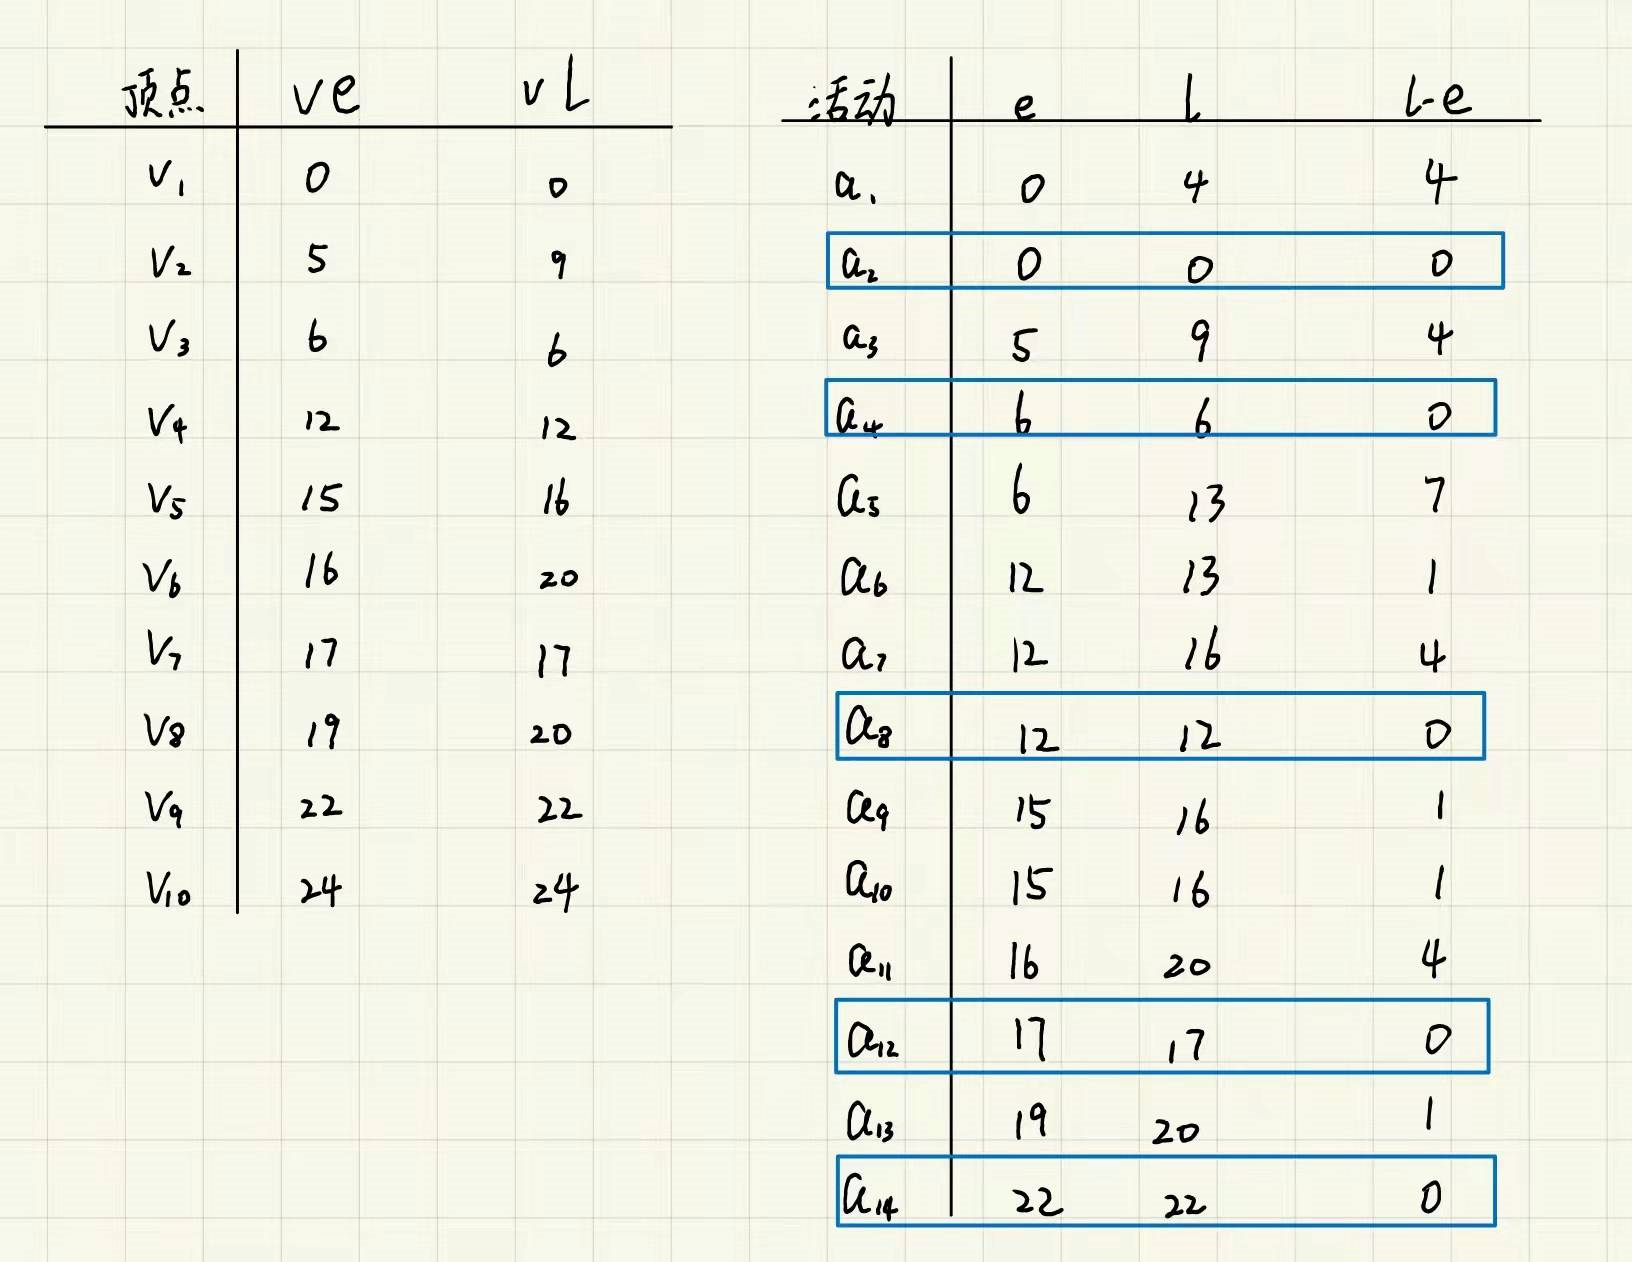 顶点 ve vl
V1 0 0
V2 5 9
V3 6 6
V4 12 12
V5 15 16
V6 16 20
V7 17 17
V8 19 20
V9 22 22
V10 24 24
活动 e l l-e
a1 0 4 4
a2 0 0 0
a3 5 9 4
a4 6 6 0
a5 6 13 7
a6 12 13 1
a7 12 16 4
a8 12 12 0
a9 15 16 1
a10 15 16 1
a11 16 20 4
a12 17 17 0
a13 19 20 1
a14 22 22 0